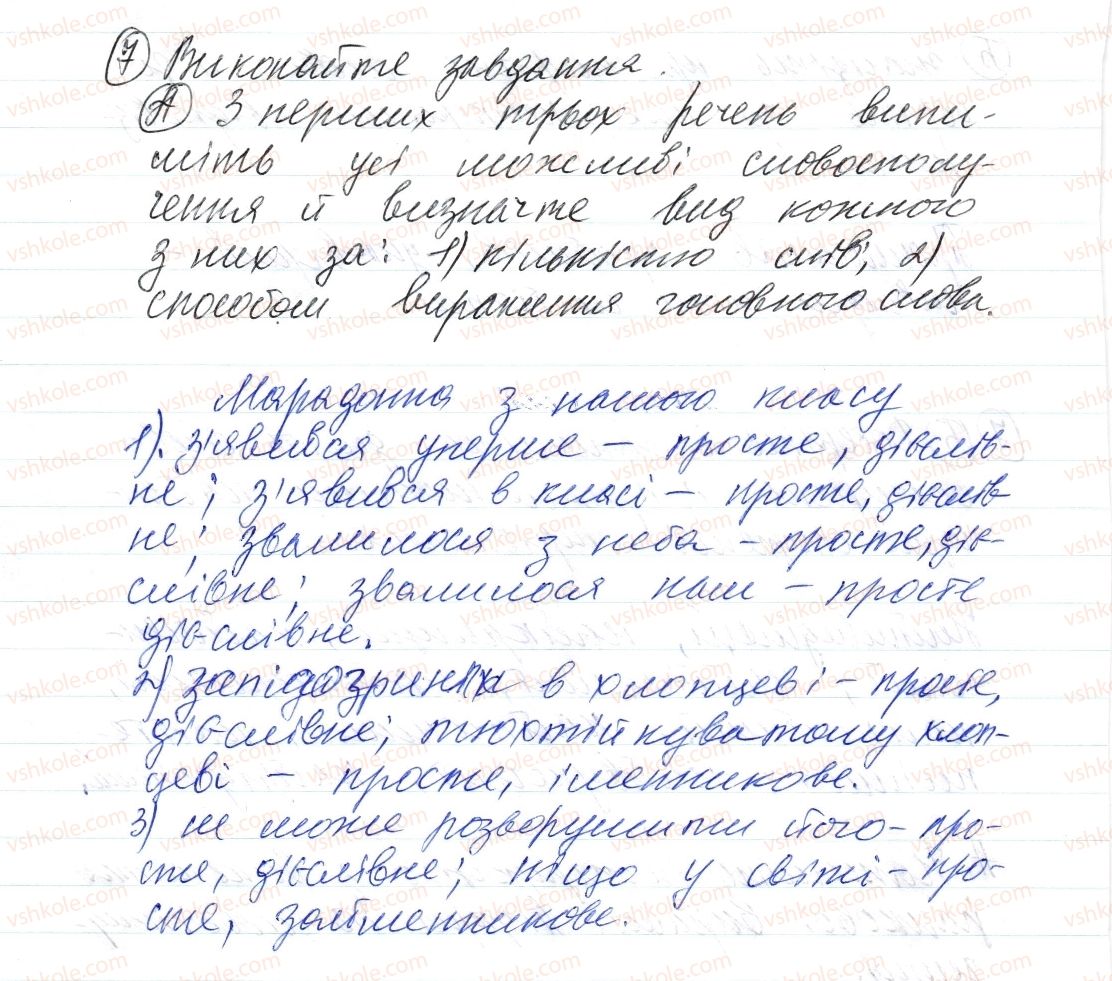 7 Виконайте завдання.
А З перших трьох речень випи-
шіть усі можливі словосполу-
чення й визначте вид кожного
з них за: 1) кількістю слів; 2)
способом вираження головного слова.
Марадонна з нашого класу
1). з'явився уперше – просте, дієслів-
не; з'явився в класі – просте, дієслів-
не; звалилося з неба – просте, діє-
слівне; звалилося наш – просте
дієслівне.
2) запідозрити в хлопцеві – просте,
дієслівне; тюхтійкуватому хлоп-
цеві – просте, іменникове.
3) не може розворушити його – про-
сте, дієслівне; ніщо у світі – про-
сте, займенникове.